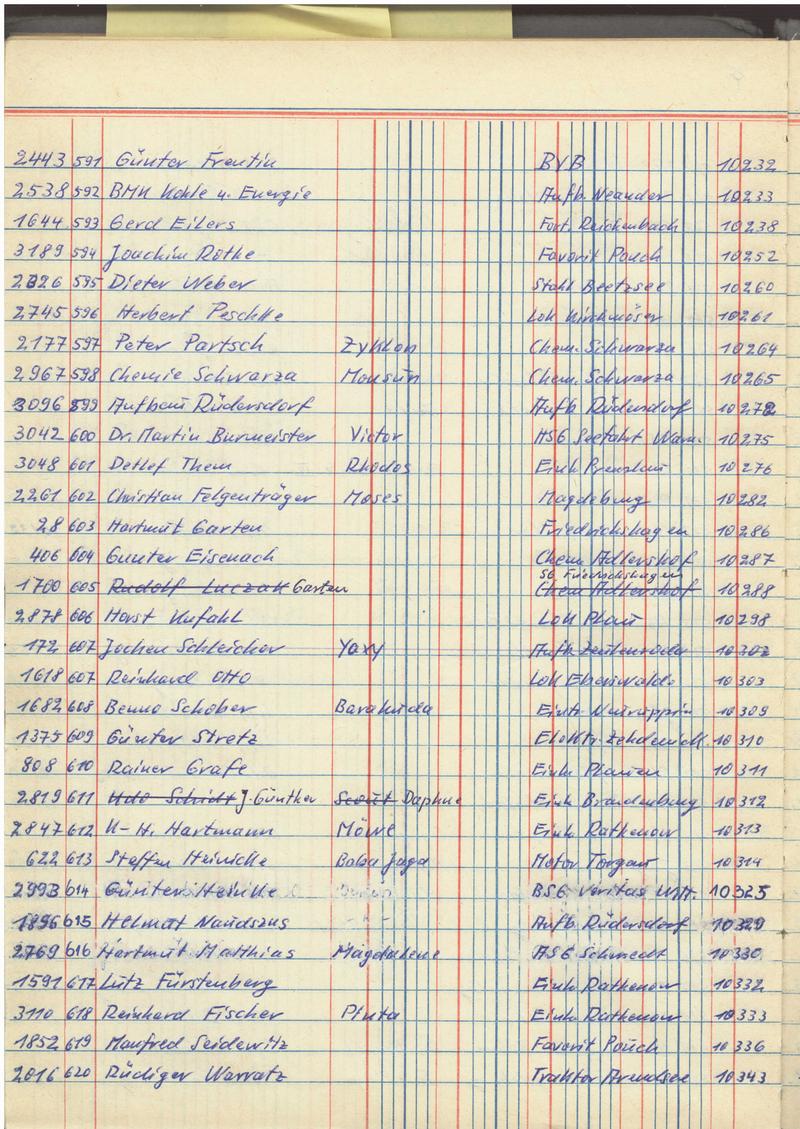 2443 591 Günter Frentin BVB 10232
2538 592 BMK Kohle u. Energie Aufb. Neander 10233
1644 593 Gerd Eilers Fort. Reichenbach 10238
3189 594 Joachim Rothe Favorit Pouch 10252
595 Dieter Weber Stahl Beetzsee 10260
2745 596 Herbert Peschke Lok Kirchmöser 10261
2177 597 Peter Partsch Zyklon Chem. Schwarza 10264
2967 598 Chemie Schwarza Monsun Chem. Schwarza 10265
3096 599 Aufbau Rüdersdorf Aufb. Rüdersdorf 10272
3042 600 Dr. Martin Burmeister Victor HSG Seefahrt Warn. 10275
3048 601 Detlef Them Rhodos Einh. Prenzlau 10276
2261 602 Christian Felgenträger Moses Magdeburg 10282
28 603 Hartmut Garten Friedrichshagen 10286
406 604 Gunter Eisenach Chem. Adlershof 10287
SG Friedrichshagen
1700 605 Rudolf Luczak Garten Chem. Adlershof 10288
2878 606 Horst Kufahl Lok Plau 10298
172 607 Jochen Schleicher Yaxy Aufb. Zeulenroda 10302
1618 607 Reinhard Otto Lok Eberswalde 10303
1682 608 Benno Schober Barakuda Eintr. Neuruppin 10309
1375 609 Günter Stretz Elektr. Zehdenick. 10310
808 610 Rainer Grafe Einh. Plauen 10311
2819 611 Udo Schidt J. Günther Scout Daphne Einh. Brandenburg 10312
2847 612 K-H. Hartmann Möwe Einh. Rathenow 10313
622 613 Steffen Heinicke Baba Jaga Motor Torgau 10314
2993 614 Günter Heinke BSG Veritas Witt. 10325
1896 615 Helmut Naudszus - " - Aufb. Rüdersdorf 10329
2769 616 Hartmut Matthias Magdalene ASG Schwedt 10330
1591 617 Lutz Fürstenberg Einh. Rathenow 10332
3110 618 Reinhard Fischer Pinta Einh. Rathenow 10333
1852 619 Manfred Seidewitz Favorit Pouch 10336
2016 620 Rüdiger Warratz Traktor Arendsee 10343